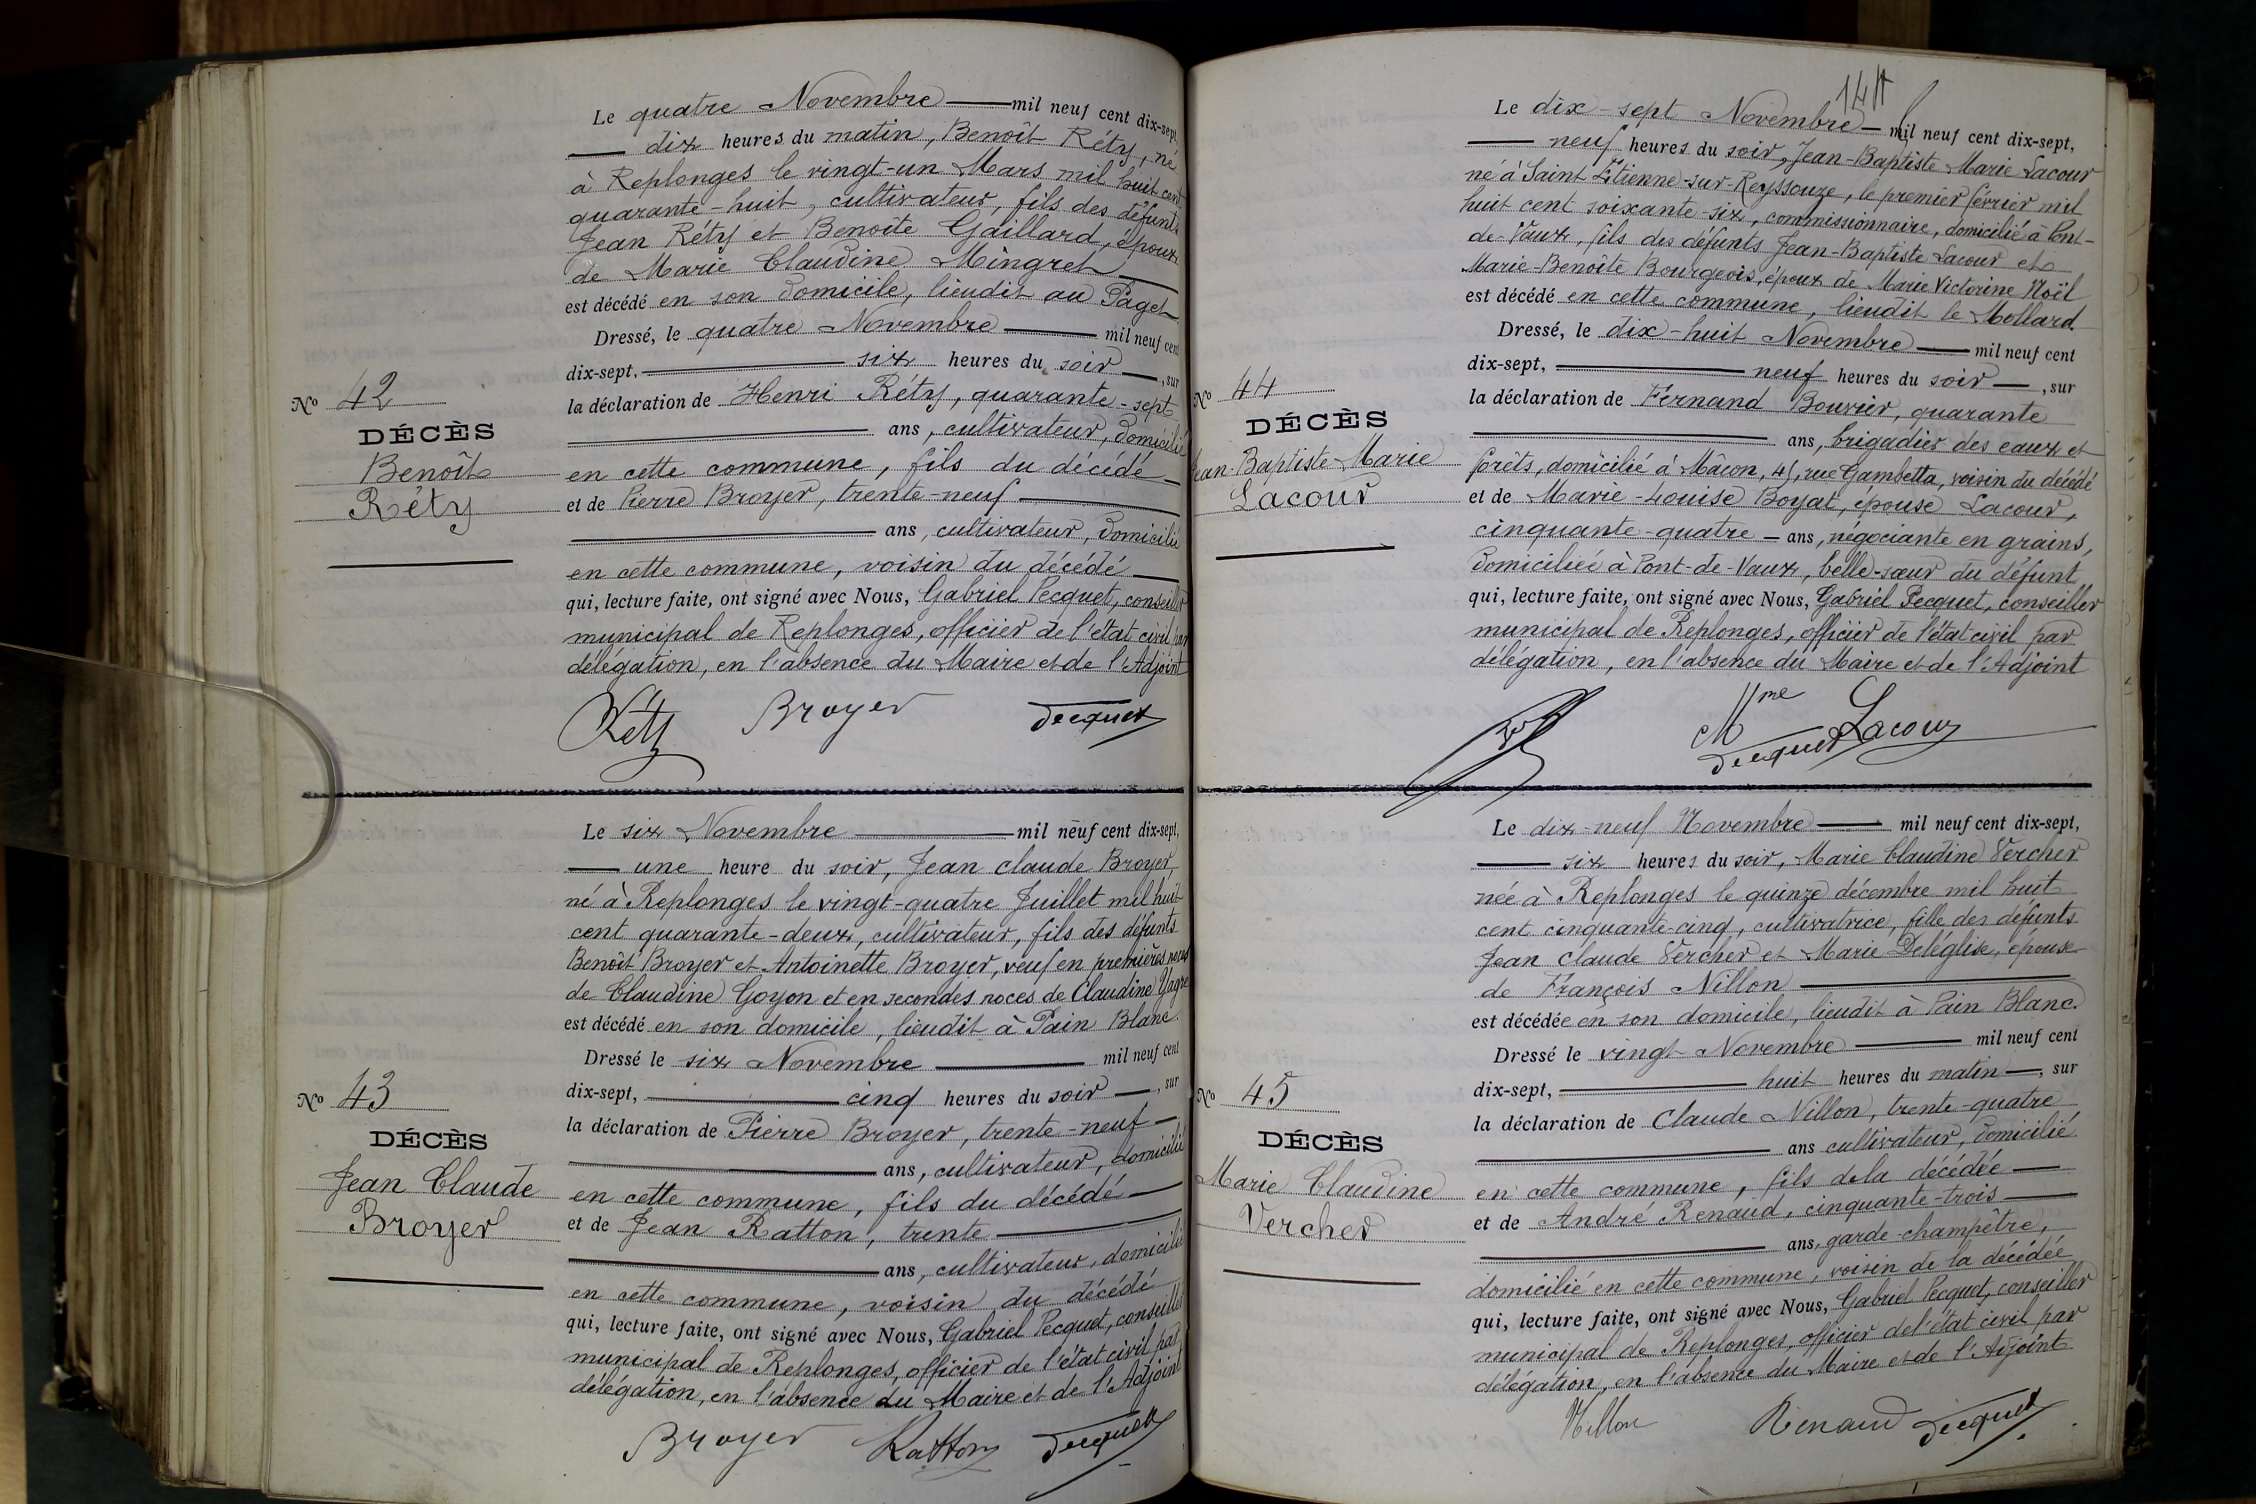 Le quatre Novembre mil neuf cent dix-sept,
dix heures du matin, Benoît Réty, né
à Replonges le vingt-un Mars mil huit cent
quarante-huit, cultivateur, fils des défunts
Jean Réty et Benoîte Gaillard, époux
de Marie Claudine Mingret
est décédé en son domicile, lieudit au Paget
Dressé, le quatre Novembre mil neuf cent
dix-sept, six heures du soir, sur
la déclaration de Henri Réty, quarante-sept
ans, cultivateur, domicilié
en cette commune, fils du décédé
et de Pierre Broyer, trente-neuf
ans, cultivateur, domicilié
en cette commune, voisin du décédé
qui, lecture faite, ont signé avec Nous, Gabriel Pecquet, conseiller
municipal de Replonges, officier de l'état civil par
délégation, en l'absence du Maire et de l'Adjoint
Réty Broyer Pecquet
No 42
DÉCÈS
Benoît
Réty
Le six Novembre mil neuf cent dix-sept,
une heure du soir, Jean Claude Broyer,
né à Replonges le vingt-quatre Juillet mil huit
cent quarante-deux, cultivateur, fils des défunts
Benoît Broyer et Antoinette Broyer, veuf en premières noces
de Claudine Goyon et en secondes noces de Claudine
est décédé en son domicile, lieudit à Pain Blanc.
Dressé le six Novembre mil neuf cent
dix-sept, cinq heures du soir, sur
la déclaration de Pierre Broyer, trente-neuf
ans, cultivateur, domicilié
en cette commune, fils du décédé
et de Jean Ratton, trente
ans, cultivateur, domicilié
en cette commune, voisin du décédé
qui, lecture faite, ont signé avec Nous, Gabriel Pecquet, conseiller
municipal de Replonges, officier de l'état civil par
délégation, en l'absence du Maire et de l'Adjoint
Broyer Ratton Pecquet
No 43
DÉCÈS
Jean Claude
Broyer
Le dix-sept Novembre mil neuf cent dix-sept,
neuf heures du soir, Jean-Baptiste Marie Lacour
né à Saint Etienne-sur-Reyssouze, le premier février mil
huit cent soixante-six, commissionnaire, domicilié à Pont-
de-Vaux, fils des défunts Jean-Baptiste Lacour et
Marie-Benoîte Bourgeois, époux de Marie Victorine Noël
est décédé en cette commune, lieudit le Mollard.
Dressé, le dix-huit Novembre mil neuf cent
dix-sept, neuf heures du soir, sur
la déclaration de Fernand Bouvier, quarante
ans, brigadier des eaux et
forêts, domicilié à Mâcon, rue Gambetta, voisin du décédé
et de Marie-Louise Boyat, épouse Lacour,
cinquante-quatre ans, négociante en grains,
domiciliée à Pont-de-Vaux, belle-sœur du défunt
qui, lecture faite, ont signé avec Nous, Gabriel Pecquet, conseiller
municipal de Replonges, officier de l'état civil par
délégation, en l'absence du Maire et de l'Adjoint
Mme Lacour
Pecquet
No 44
DÉCÈS
Jean-Baptiste-Marie
Lacour
Le dix-neuf Novembre mil neuf cent dix-sept,
six heures du soir, Marie Claudine Vercher
née à Replonges le quinze décembre mil huit
cent cinquante-cinq, cultivatrice, fille des défunts
Jean Claude Vercher et Marie Deléglise, épouse
de François Nillon
est décédée en son domicile, lieudit à Pain Blanc.
Dressé le vingt Novembre mil neuf cent
dix-sept, huit heures du matin, sur
la déclaration de Claude Nillon, trente-quatre
ans cultivateur, domicilié
en cette commune, fils de la décédée
et de André Renaud, cinquante-trois
ans, garde-champêtre,
domicilié en cette commune, voisin de la décédée
qui, lecture faite, ont signé avec Nous, Gabriel Pecquet, conseiller
municipal de Replonges, officier de l'état civil par
délégation, en l'absence du Maire et de l'Adjoint
Nillon Renaud Pecquet
No 45
DÉCÈS
Marie Claudine
Vercher